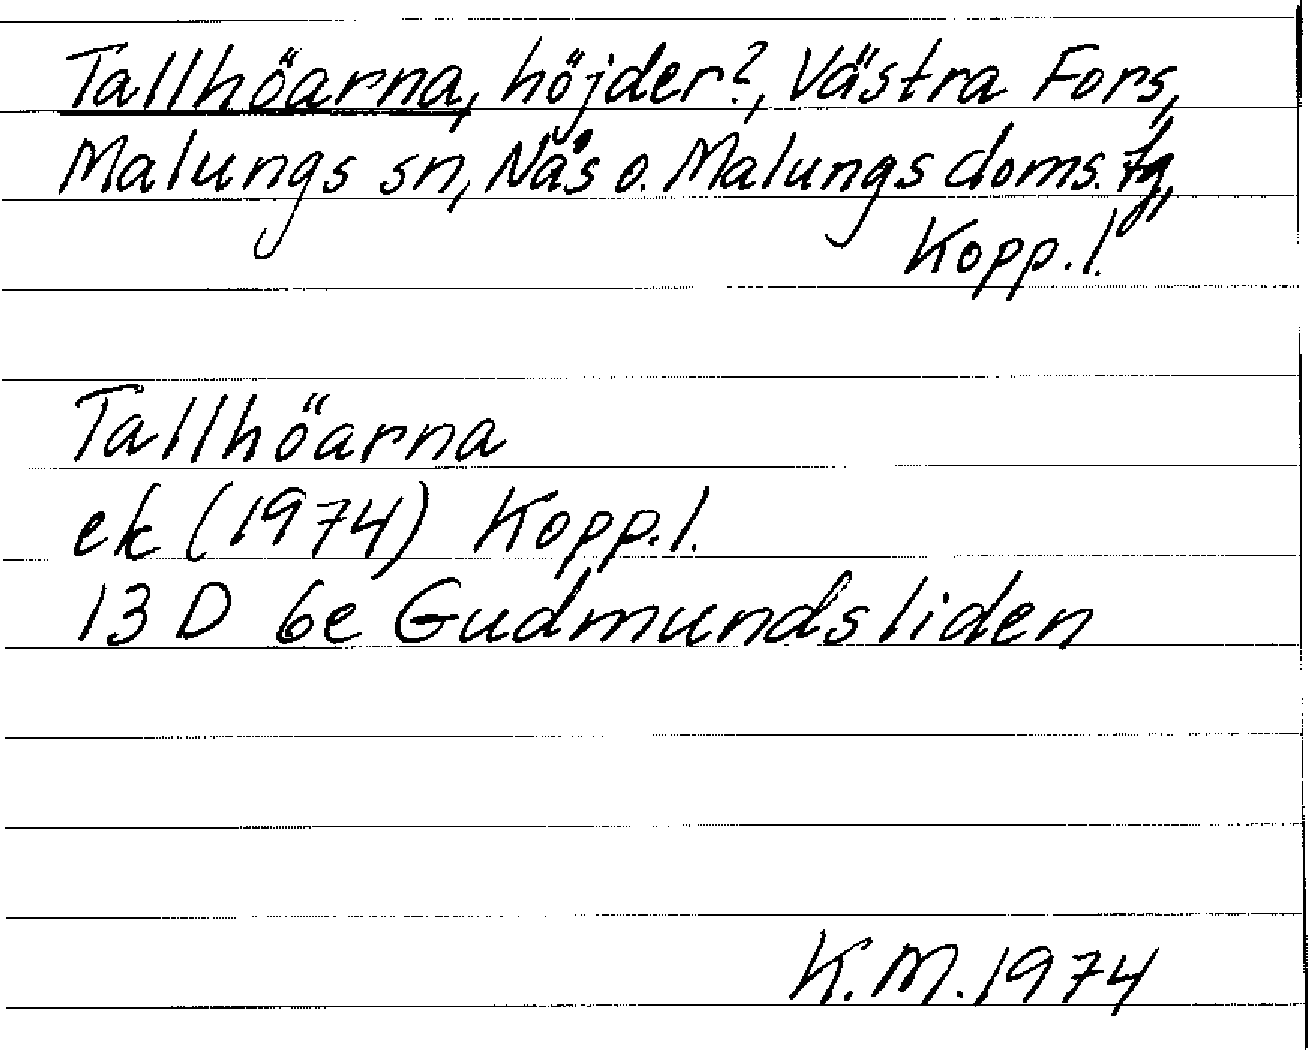 Tallhöarna, höjder?, Västra Fors,
Malungs sn, Nås o. Malungs doms. tg,
Kopp.l.
Tallhöarna
ek (1974) Kopp.l.
13 D 6e Gudmundsliden
K.M. 1974